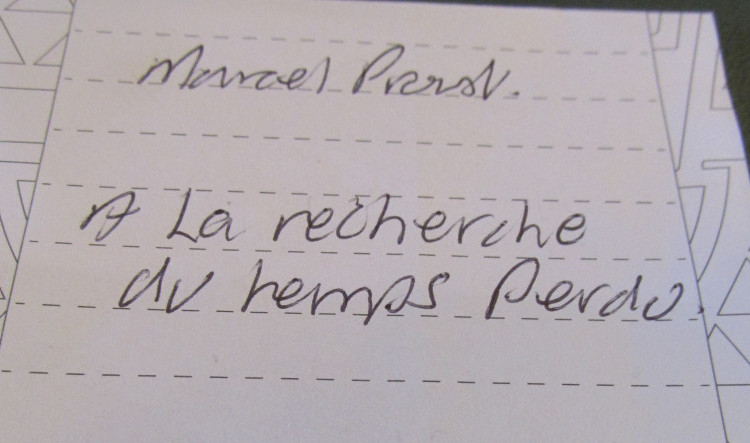 Marcel Proust.
A La recherche
du temps Perdu.